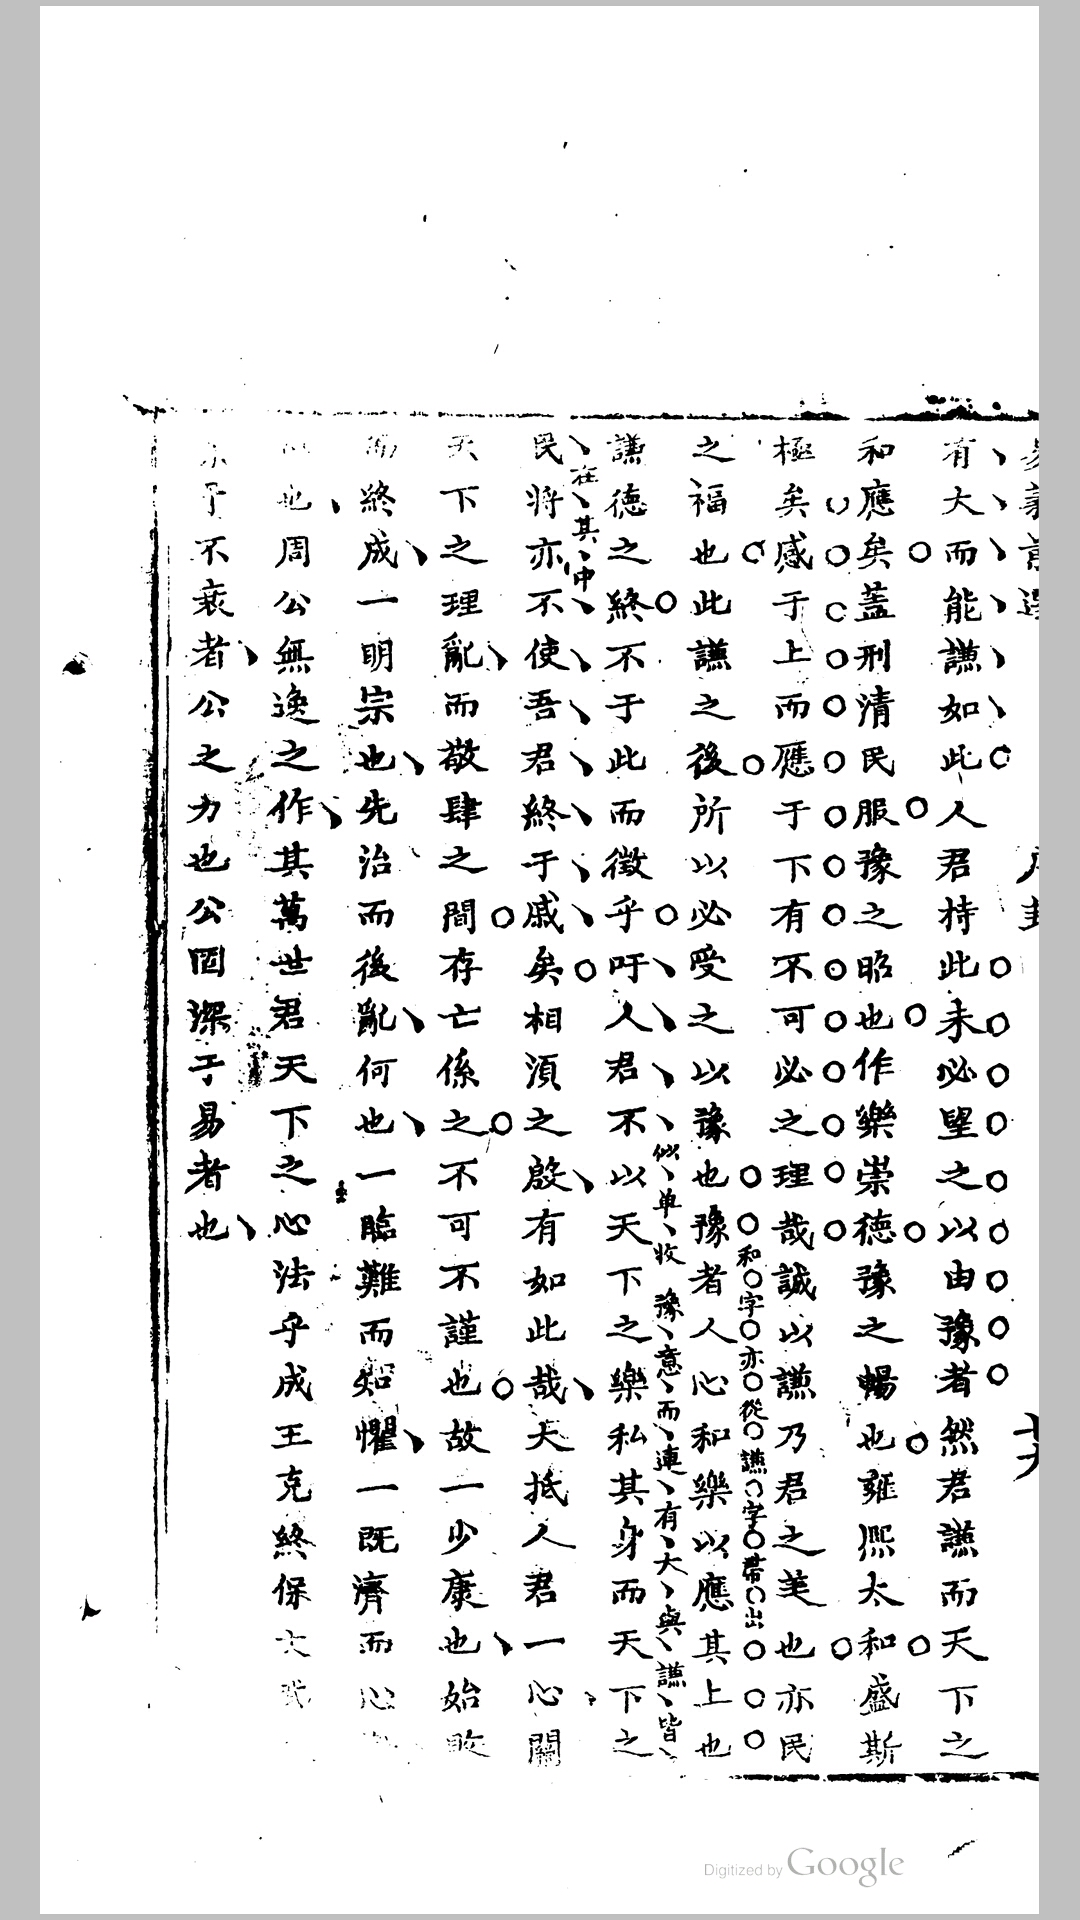 有大而能謙如此人君持此未必望之以由豫者然君謙而天下之
和應矣蓋刑清民服豫之昭也作樂崇德豫之暢也雍熙太和盛斯
極矣感于上而應于下有不可必之理哉誠以謙乃君之美也亦民
和字亦從謙字帶出
之福也此謙之後所以必受之以豫也豫者人心和樂以應其上也
似单收豫意而連有大與謙皆
在其中
謙德之終不于此而徵乎吁人君不以天下之樂私其身而天下之
民將亦不使吾君終于戚矣相須之殷有如此哉大抵人君一心關
天下之理亂而敬肆之間存亡係之不可不謹也故一少康也始敗
而終成一明宗也先治而後亂何也一臨難而知懼一既濟而心
也周公無逸之作其萬世君天下之心法乎成王克終保文武
于不衰者公之力也公固深于易者也
Digitized by Google